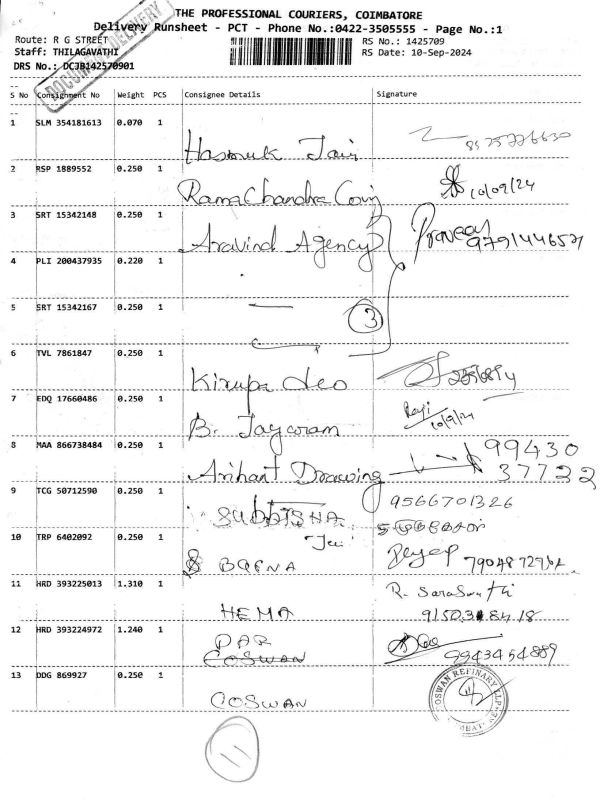 THE PROFESSIONAL COURIERS, COIMBATORE
Delivery Runsheet - PCT - Phone No.:0422-3505555 - Page No.:1
Route: R G STREET
RS No.: 1425709
Staff: THILAGAVATHI
RS Date: 10-Sep-2024
DRS No.: DCJB142570901
S No Consignment No Weight PCS Consignee Details Signature
1 SLM 354181613 0.070 1
Hasmuk Jain
2 RSP 1889552 0.250 1
RamaChandra 10/09/24
3 SRT 15342148 0.250 1
Aravind Agency Praveen
4 PLI 200437935 0.220 1
5 SRT 15342167 0.250 1
3
6 TVL 7861847 0.250 1
Kirupa
7 EDQ 17660486 0.250 1
B. Jayaram 10/9/24
8 MAA 866738484 0.250 1
99430
Arihant Drawing 37722
9 TCG 50712590 0.250 1
9566701326
10 TRP 6402092 0.250 1
11 HRD 393225013 1.310 1
HEMA
12 HRD 393224972 1.240 1
9943454889
13 DDG 869927 0.250 1
COSWAN